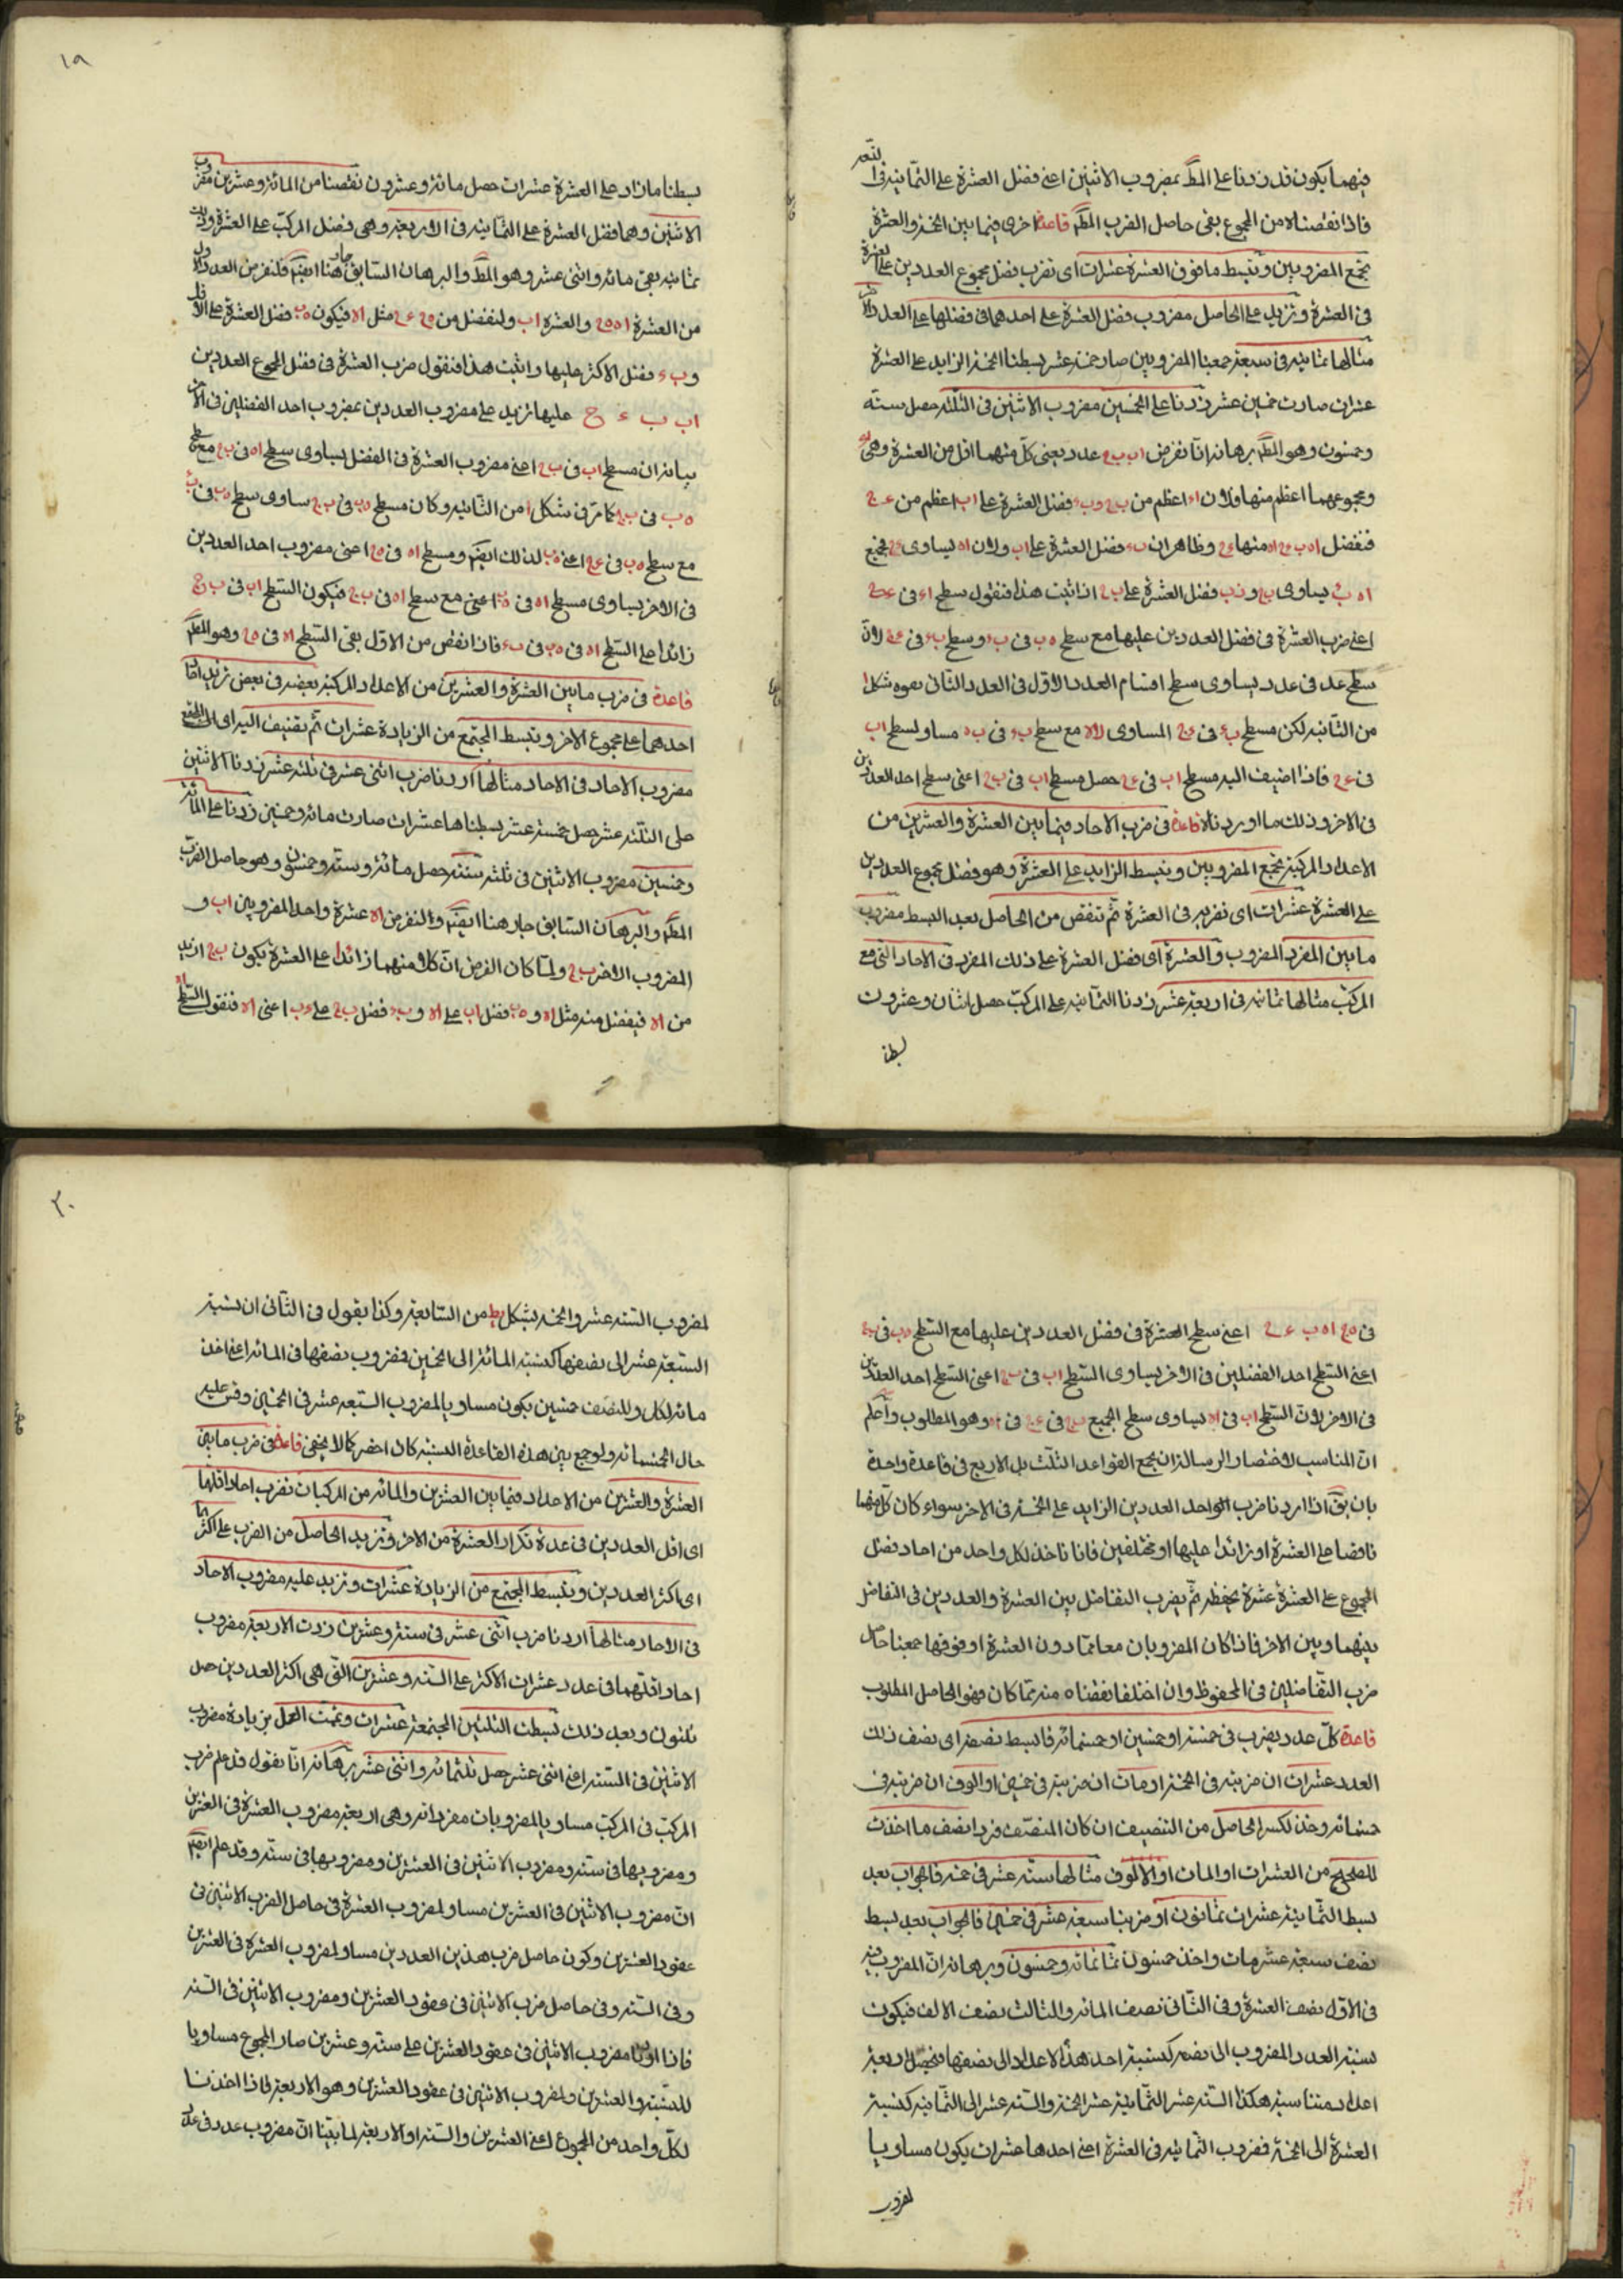 فيهما يكون قد زدنا على المط بمضروب الاثنين اعنى فضل العشرة على الثمانية فى
فاذا نقصناه من المجموع بقى حاصل الضرب المط قاعدة اخرى فيما بين الخمسة والعشرة
تجمع المضروبين وتبسط ما فوق العشرة عشرات اى تضرب فضل مجموع العددين على العشرة
فى العشرة وتزيد على الحاصل مضروب فضل العشرة على احدهما فى فضلها على العدد الاخر
مثالها ثمانية فى سبعة جمعنا المضروبين صار خمسة عشر بسطنا الخمسة الزايد على العشرة
عشرات صارت خمسين عشر زدنا على الخمسين مضروب الاثنين فى الثلثة حصل ستة
وخمسون وهو المط برهانه انا نفرض اب ب ج عدد يعنى كل منهما اقل من العشرة وهى
ومجموعهما اعظم منها ولان اء اعظم من ب ج وب ء فضل العشرة على اب اعظم من ء ج
فنفصل منها وظاهر ان ب ء فضل العشرة على اب ولان اه يساوى ء ج فجميع
يساوى ب ج و فضل العشرة على ب ج اذا ثبت هذا فنقول سطح اء فى
اعنى ضرب العشرة فى فضل العددين عليها مع سطح ه ب فى ب ء وسطح ب ء فى لان
سطح عدد فى عدد يساوى سطح اقسام العدد الاول فى العدد الثانى بقوه شكل ا
من الثانية لكن مسطح ب ء فى المساوى لاه مع سطح ب ء فى ب ه مساو لسطح اب
فى ء ج فاذا اضيف اليه مسطح اب فى ء ج حصل مسطح اب فى ب ج اعنى سطح احد العددين
فى الاخر وذلك ما اوردناه قاعدة فى ضرب الاحاد فيما بين العشرة والعشرين من
الاعداد المركبة تجمع المضروبين وتبسط الزايد على العشرة وهو فضل مجموع العددين
على العشرة عشرات اى تضربه فى العشرة ثم تنقص من الحاصل بعد البسط مضروب
ما بين المفرد المضروب والعشرة اى فضل العشرة على ذلك المفرد فى الاحاد التى مع
المركب مثالها ثمانية فى اربعة عشر زدنا الثمانية على المركب حصل اثنان وعشرون
بسطنا
١٩
بسطنا ما زاد على العشرة عشرات حصل مائة وعشرون نقصنا من المائة وعشرين مضروب
الاثنين وهما فضل العشرة على الثمانية فى الاربعة وهى فضل المركب على العشرة وذلك
ثمانية بقى مائة واثنى عشر وهو المط والبرهان السابق جار هنا ايضا فلنفرض العدد
من العشرة والعشرة اب ولنفصل من مثل اه فيكون ه ب فضل العشرة على
وب ء فضل الاكثر عليها واثبت هذا فنقول ضرب العشرة فى فضل المجموع العددين
اب ب ء ج عليها تزيد على مضروب العددين بمضروب احد الفضلين فى الاخر
بيانه ان مسطح اب فى ب ج اعنى مضروب العشرة فى الفضل يساوى سطح اه فى ب ج مع سطح
ه ب فى ب ج كما مر فى شكل ا من الثانية وكان مسطح ه ب فى ب ج ساوى سطح ه ب فى
مع سطح ه ب فى ء ج اعنى لذلك ايضا ومسطح اه فى اعنى مضروب احد العددين
فى الاخر يساوى مسطح اه فى اعنى مع سطح اه فى ب ج فيكون السطح اب فى ب ج
زائدا على السطح اه فى ه ب فى ب ء فاذا نقص من الاول بقى السطح اه فى وهو المط
قاعدة فى ضرب ما بين العشرة والعشرين من الاعداد المركبة بعضه فى بعض تزيد احاد
احدهما على مجموع الاخر وتبسط المجتمع من الزيادة عشرات ثم تضيف اليه اى الى المجتمع
مضروب الاحاد فى الاحاد مثالها اردنا ضرب اثنى عشر فى ثلثة عشر زدنا الاثنين
على الثلثة عشر حصل خمسة عشر بسطناها عشرات صارت مائة وخمسين زدنا على المائة
وخمسين مضروب الاثنين فى ثلثة ستة حصل مائة وستة وخمسون وهو حاصل الضرب
المط والبرهان السابق جار هنا ايضا ولنفرض اه عشرة واحد المضروبين اب و
المضروب الاخر ب ج ولما كان الفرض ان كلا منهما زائدا على العشرة يكون ب ج ازيد
من اه فيفصل منه مثل اه و ه ب فضل اب على اه وب ء فضل ب ج على ء ب اعنى اه فنقول السطح
فى اعنى سطح العشرة فى فضل العددين عليها مع السطح ه ب فى
اعنى السطح احد الفضلين فى الاخر يساوى السطح اب فى ب ج اعنى السطح احد العددين
فى الاخر لان السطح اب فى اه يساوى سطح الجميع فى وهو المطلوب واعلم
ان المناسب لاختصار الرسالة ان يجمع القواعد الثلث بل الاربع فى قاعدة واحدة
بان يق اذا اردنا ضرب الواحد العددين الزايد على الخمسة فى الاخر سواء كان كل منهما
ناقصا على العشرة او زائدا عليها او مختلفين فانا ناخذ لكل واحد من احاد فضل
المجموع على العشرة عشرة بحفظه ثم يضرب التفاضل بين العشرة والعددين فى التفاضل
بينهما وبين الاخر فاذا كان المضروبان معا مما دون العشرة او فوقها جمعنا حاصل
ضرب التفاضلين فى المحفوظ وان اختلفا نقصناه منه مما كان فهو الحاصل المطلوب
قاعدة كل عدد يضرب فى خمسة او خمسين او خمسمائة فابسط نصفه اى نصف ذلك
العدد عشرات ان ضربته فى الخمسة او مات ان ضربته فى خمسين او الوف ان ضربته فى
خمسمائة وخذ لكسر الحاصل من التنصيف ان كان المنصف فردا نصف ما اخذت
للصحيح من العشرات او المات او الالوف مثالها ستة عشر فى خمسة فالجواب بعد
بسط الثمانية عشرات ثمانون او ضربنا سبعة عشر فى خمسين فالجواب بعد بسط
نصف سبعة عشر مات واخذ خمسون ثمانمائة وخمسون وبرهانه ان المضروب فيه
فى الاول نصف العشرة وفى الثانى نصف المائة والثالث نصف الالف فيكون
نسبة العدد المضروب الى نصفه كنسبة احد هذه الاعداد الى نصفها فيحصل اربعة
اعداد متناسبة هكذا الستة عشر الثمانية عشر الخمسة والستة عشر الى الثمانية كنسبة
العشرة الى الخمسة فمضروب الثمانية فى العشرة اعنى احدها عشرات يكون مساويا
لمضروب
٢٠
لمضروب الستة عشر والخمسة بشكل يط من السابعة وكذا يقول فى الثانى ان نسبة
السبعة عشر الى نصفها كنسبة المائة الى الخمسين فمضروب نصفها فى المائة اعنى اخذ
مائة لكل وللنصف خمسين يكون مساويا لمضروب السبعة عشر فى الخمسين وقس عليه
حال الخمسمائة ولو جمع بين هذه القاعدة الستة كان اخصر كما لا يخفى قاعدة فى ضرب ما بين
العشرة والعشرين من الاعداد فيما بين العشرين والمائة من المركبات تضرب احاد اقلهما
اى اقل العددين فى عدة تكرار العشرة من الاخر وتزيد الحاصل من الضرب على اكثرهما
اى اكثر العددين وتبسط المجتمع من الزيادة عشرات وتزيد عليه مضروب الاحاد
فى الاحاد مثالها اردنا ضرب اثنى عشر فى ستة وعشرين زدت الاربعة مضروب
احاد اقلهما فى عدد عشرات الاكثر على الستة وعشرين التى هى اكثر العددين حصل
ثلثون وبعد ذلك بسطت الثلثين المجتمعة عشرات وتممت العمل بزيادة مضروب
الاثنين فى الستة اعنى اثنى عشر حصل ثلثمائة واثنى عشر برهانه انا نقول قد علم ضرب
المركب فى المركب مساو بالمضروبات مفرداته وهى اربعة مضروب العشرة فى العشرين
ومضروبها فى ستة ومضروب الاثنين فى العشرين ومضروبها فى ستة وقد علم ايضا
ان مضروب الاثنين فى العشرين مساو لمضروب العشرة فى حاصل الضرب الاثنين فى
عقود العشرين وكون حاصل ضرب هذين العددين مساو لمضروب العشرة فى العشرين
وفى الستة وفى حاصل ضرب الاثنين فى عقود العشرين ومضروب الاثنين فى الستة
فاذا زدنا مضروب الاثنين فى عقود العشرين على ستة وعشرين صار المجموع مساويا
للستة والعشرين ولمضروب الاثنين فى عقود العشرين وهو الاربعة فاذا اخذنا
لكل واحد من المجموع اعنى العشرين والستة والاربعة لما بينا ان مضروب عدد فى عدد